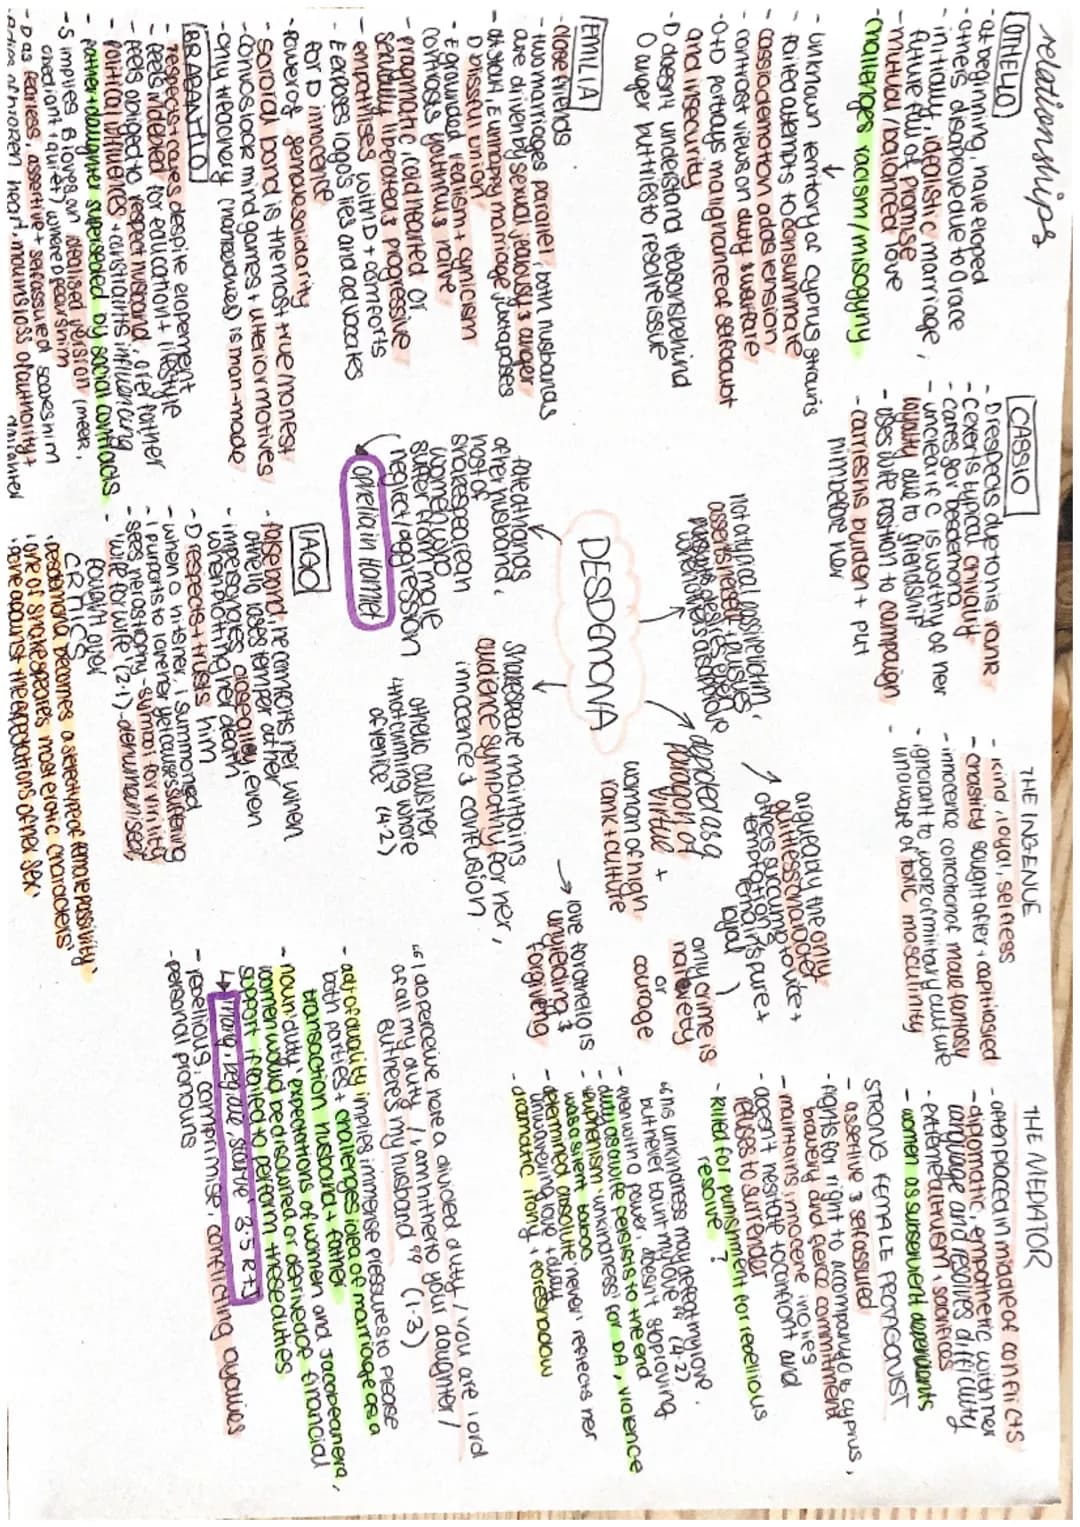 relationships
OTHELLO
- at beginning, have eloped
- others disapprove due to O race
- initially, idealistic marriage,
future full of promise
- mutual/balanced love
- challenges racism/misogyny
- unknown territory of cyprus strains
- failed attempts to consummate
- cassio demotion adds tension
- contrast views on duty & warfare
- O to D portrays malignance of self doubt
and insecurity
- D doesn't understand reasons behind
O anger but tries to resolve issue
EMILIA
- close friends
- two marriages parallel, both husbands
are driven by sexual jealousy & anger
- at start, E unhappy marriage juxtaposes
D silent union
- E grounded realism + cynicism
contrasts youthful & naive
- pragmatic, cold hearted or
sexually liberated & progressive
- empathises with D + comforts
- E exposes Iago's lies and advocates
for D innocence
- power of female solidarity
- sororal bond is the most true/honest
- convos ignore mind games + ulterior motives
- only treachery (handkerchief) is man-made
BRABANTIO
- respects + cares despite elopement
- feels indebted for education + lifestyle
- feels obliged to respect husband, over father
- political influences + constraints influencing
father + daughter superseded by social contracts
- S implies B loves an idealised version (meek,
obedient + quiet) whereas person him
- D as fearless, assertive + self assured scares him
- dies of broken heart, mourns loss of authority +
CASSIO
- D respects due to his rank
- C exerts typical chivalry
- cares for Desdemona
- unclear if C is worthy of her
loyalty due to friendship
- uses wife position to campaign
- carries his burden + put
him before her
not a typical passive victim,
asserts herself + pushes
DESDEMONA
fate at hands
of her husband,
host of
shakespearean
women who
suffer from male
neglect/aggression
ophelia in Hamlet
Shakespeare maintains
audience sympathy for her,
innocence & confusion
othello calls her
"that cunning whore
of venice" (4.2)
depicted as a
paragon of
virtue +
woman of high
rank + culture
arguably the only
guiltless character
others succumb to vice +
temptations
remains pure +
loyal
only crime is
naivety
or
courage
love for othello is
unyielding &
forgiving
IAGO
- false bond, he comforts her when
othello loses temper at her
- impersonates ally, even
when plotting her death
- D respects + trusts him
- when O hits her, I summoned
- I purports to love her yet causes suffering
- sees her as trophy - symbol for virility
- "wife for wife" (2.1) - dehumanised,
fought over
CRITICS
'Desdemona becomes a stereotype of female passivity'
'one of Shakespeare's most erotic characters'
'gone against the expectations of her sex'
THE INGENUE
- kind, loyal, selfless
- chastity sought after + capitalised
- innocence concoction of male fantasy
- ignorant to world of military culture
- unaware of toxic masculinity
THE MEDIATOR
- often placed in middle of conflicts
- diplomatic, empathetic with her
language and resolves difficulty
- extreme altruism, sacrifices
- women as subservient dependants
STRONG FEMALE PROTAGONIST
- assertive & self assured
- fights for right to accompany O to cyprus,
bravery and fierce commitment
- maintains innocence in lies
- doesn't hesitate to confront and
refuses to surrender
- killed for punishment for rebellious
resolve?
"his unkindness may defeat my love.
but never taint my love" (4.2)
- even with O power, doesn't stop loving
- duty as a wife persists to the end
- euphemism 'unkindness' for DA, violence
was a silent taboo
- determined absolute 'never' reflects her
unwavering love + duty
- dramatic irony + foreshadow
"I do perceive here a divided duty / you are lord
of all my duty /, I am hitherto your daughter /
But here's my husband" (1.3)
- act of duality implies immense pressures to please
both parties + challenges idea of marriage as a
transaction husband + father
- noun 'duty' expectations of women and Jacobean era,
women would be disowned or deprived of financial
support if failed to perform these duties
↳ "hang, beg, die, starve" 3.5 R+J
- rebellious, comprimise, conflicting loyalties
- personal pronouns